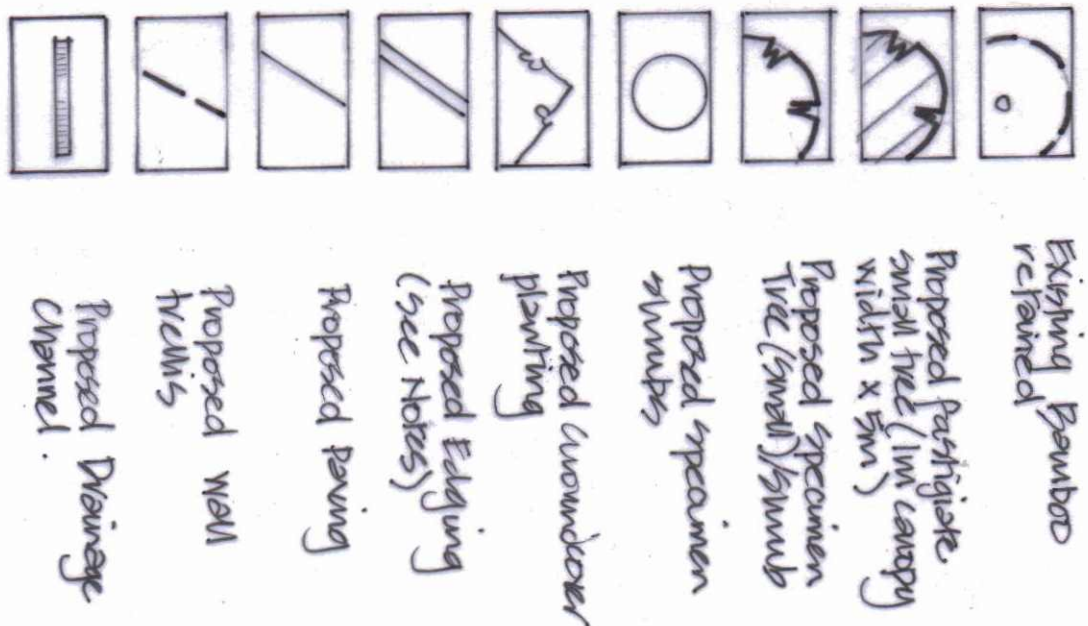 Existing Bamboo
retained
Proposed fastigiate
small tree (1m canopy
width x 5m)
Proposed specimen
Tree (small)/shrub
Proposed specimen
shrubs
Proposed Groundcover
planting
Proposed Edging
(see Notes)
Proposed Paving
Proposed Wall
trellis
Proposed Drainage
Channel.